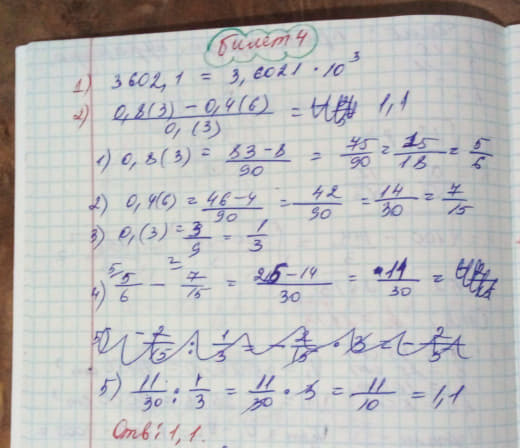 Билет 4
1) 3602,1 = 3,6021 · 10³
2) (0,8(3) – 0,4(6)) / 0,(3) = 1,1
1) 0,8(3) = (83-8)/90 = 75/90 = 15/18 = 5/6
2) 0,4(6) = (46-4)/90 = 42/90 = 14/30 = 7/15
3) 0,(3) = 3/9 = 1/3
4) ⁵⁾5/6 – ²⁾7/15 = (25-14)/30 = 11/30 =
5) 11/30 : 1/3 = 11/30 · 3 = 11/10 = 1,1
Отв: 1,1.